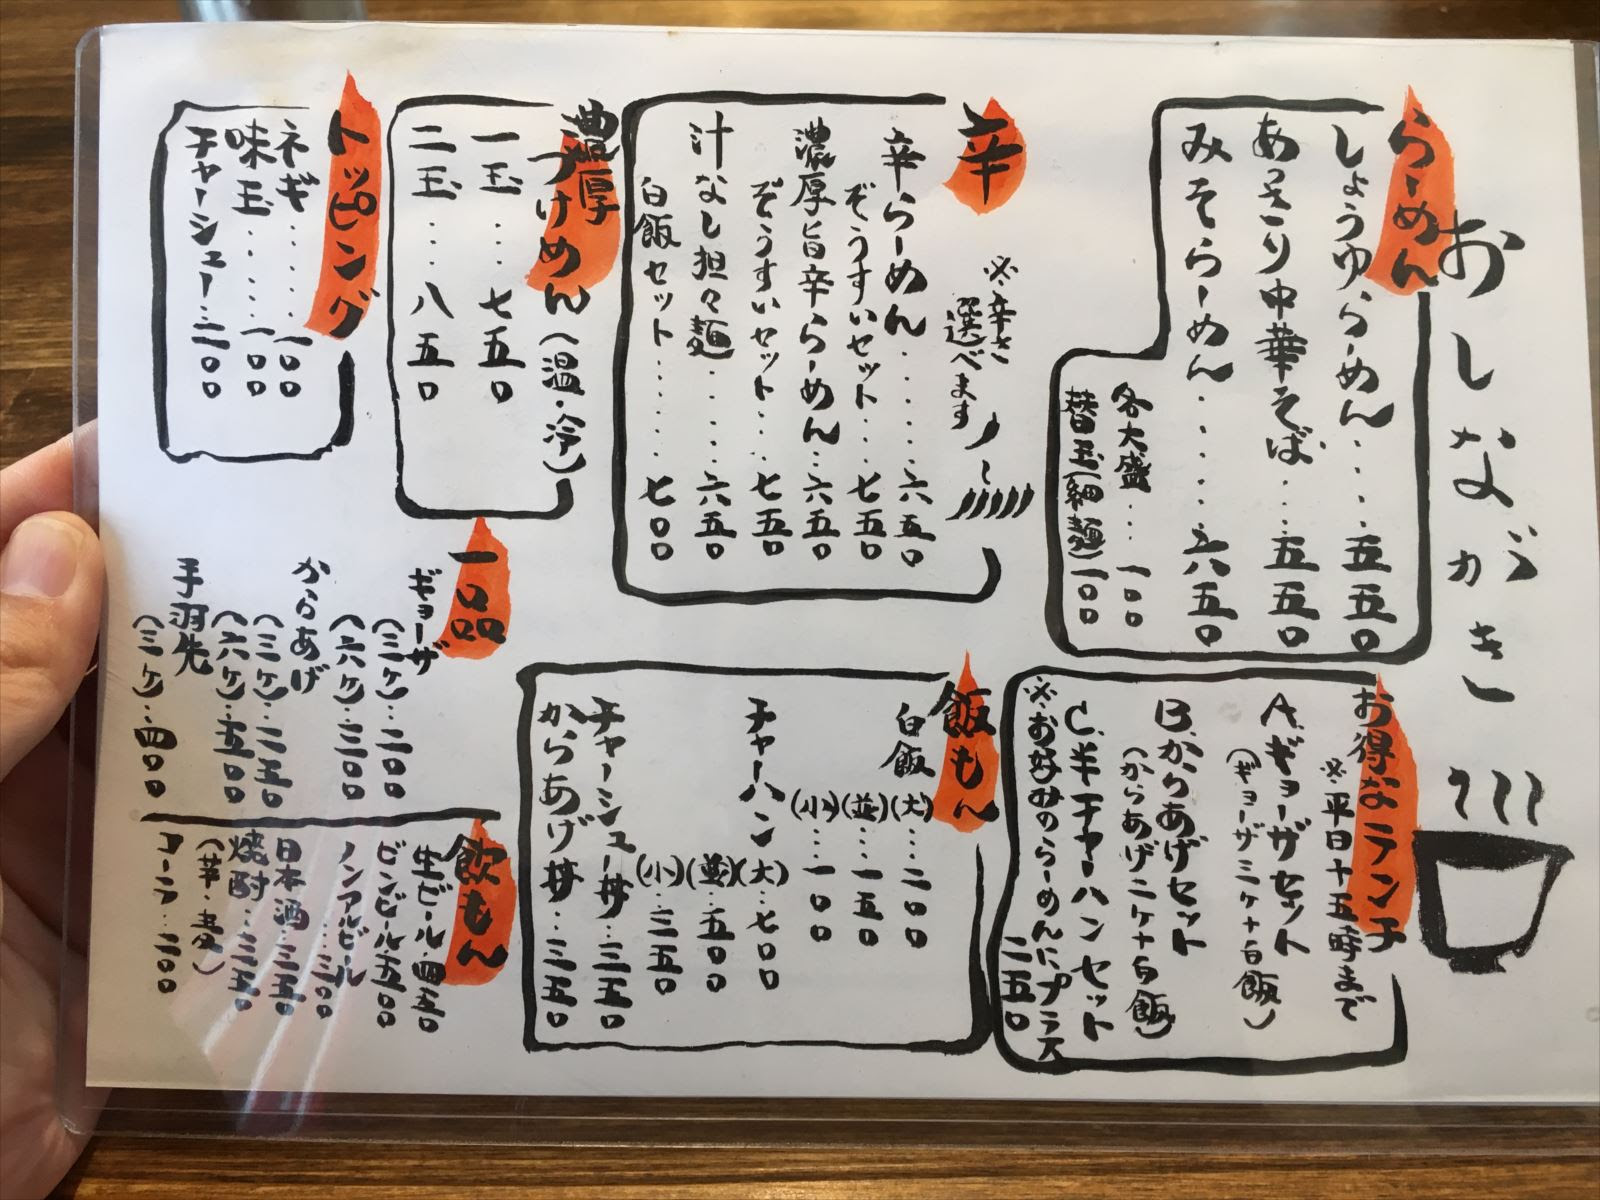 おしながき
らーめん
しょうゆらーめん……五五〇
あっさり中華そば……五五〇
みそらーめん……六五〇
各大盛……一〇〇
替玉(細麺)一〇〇
辛
※辛さ
選べます
辛らーめん……六五〇
ぞうすいセット…七五〇
濃厚旨辛らーめん…六五〇
ぞうすいセット…七五〇
汁なし担々麺……六五〇
白飯セット……七〇〇
濃厚
つけめん(温・冷)
一玉…七五〇
二玉…八五〇
トッピング
ネギ……一〇〇
味玉……一〇〇
チャーシュー…二〇〇
お得なランチ
※平日十五時まで
A.ギョーザセット
(ギョーザ三ヶ+白飯)
B.からあげセット
(からあげ二ヶ+白飯)
C.半チャーハンセット
※お好みのらーめんにプラス
二五〇
飯もん
白飯
(大)…二〇〇
(並)…一五〇
(小)…一〇〇
チャーハン
(大)…七〇〇
(並)…五〇〇
(小)…三五〇
チャーシュー丼…三五〇
からあげ丼…三五〇
一品
ギョーザ
(三ヶ)…二〇〇
(六ヶ)…三〇〇
からあげ
(三ヶ)…二五〇
(六ヶ)…五〇〇
手羽先
(三ヶ)…四〇〇
飲もん
生ビール…四五〇
ビンビール五〇〇
ノンアルビール
……三〇〇
日本酒…三五〇
焼酎…三五〇
(芋・麦)
コーラ…二〇〇